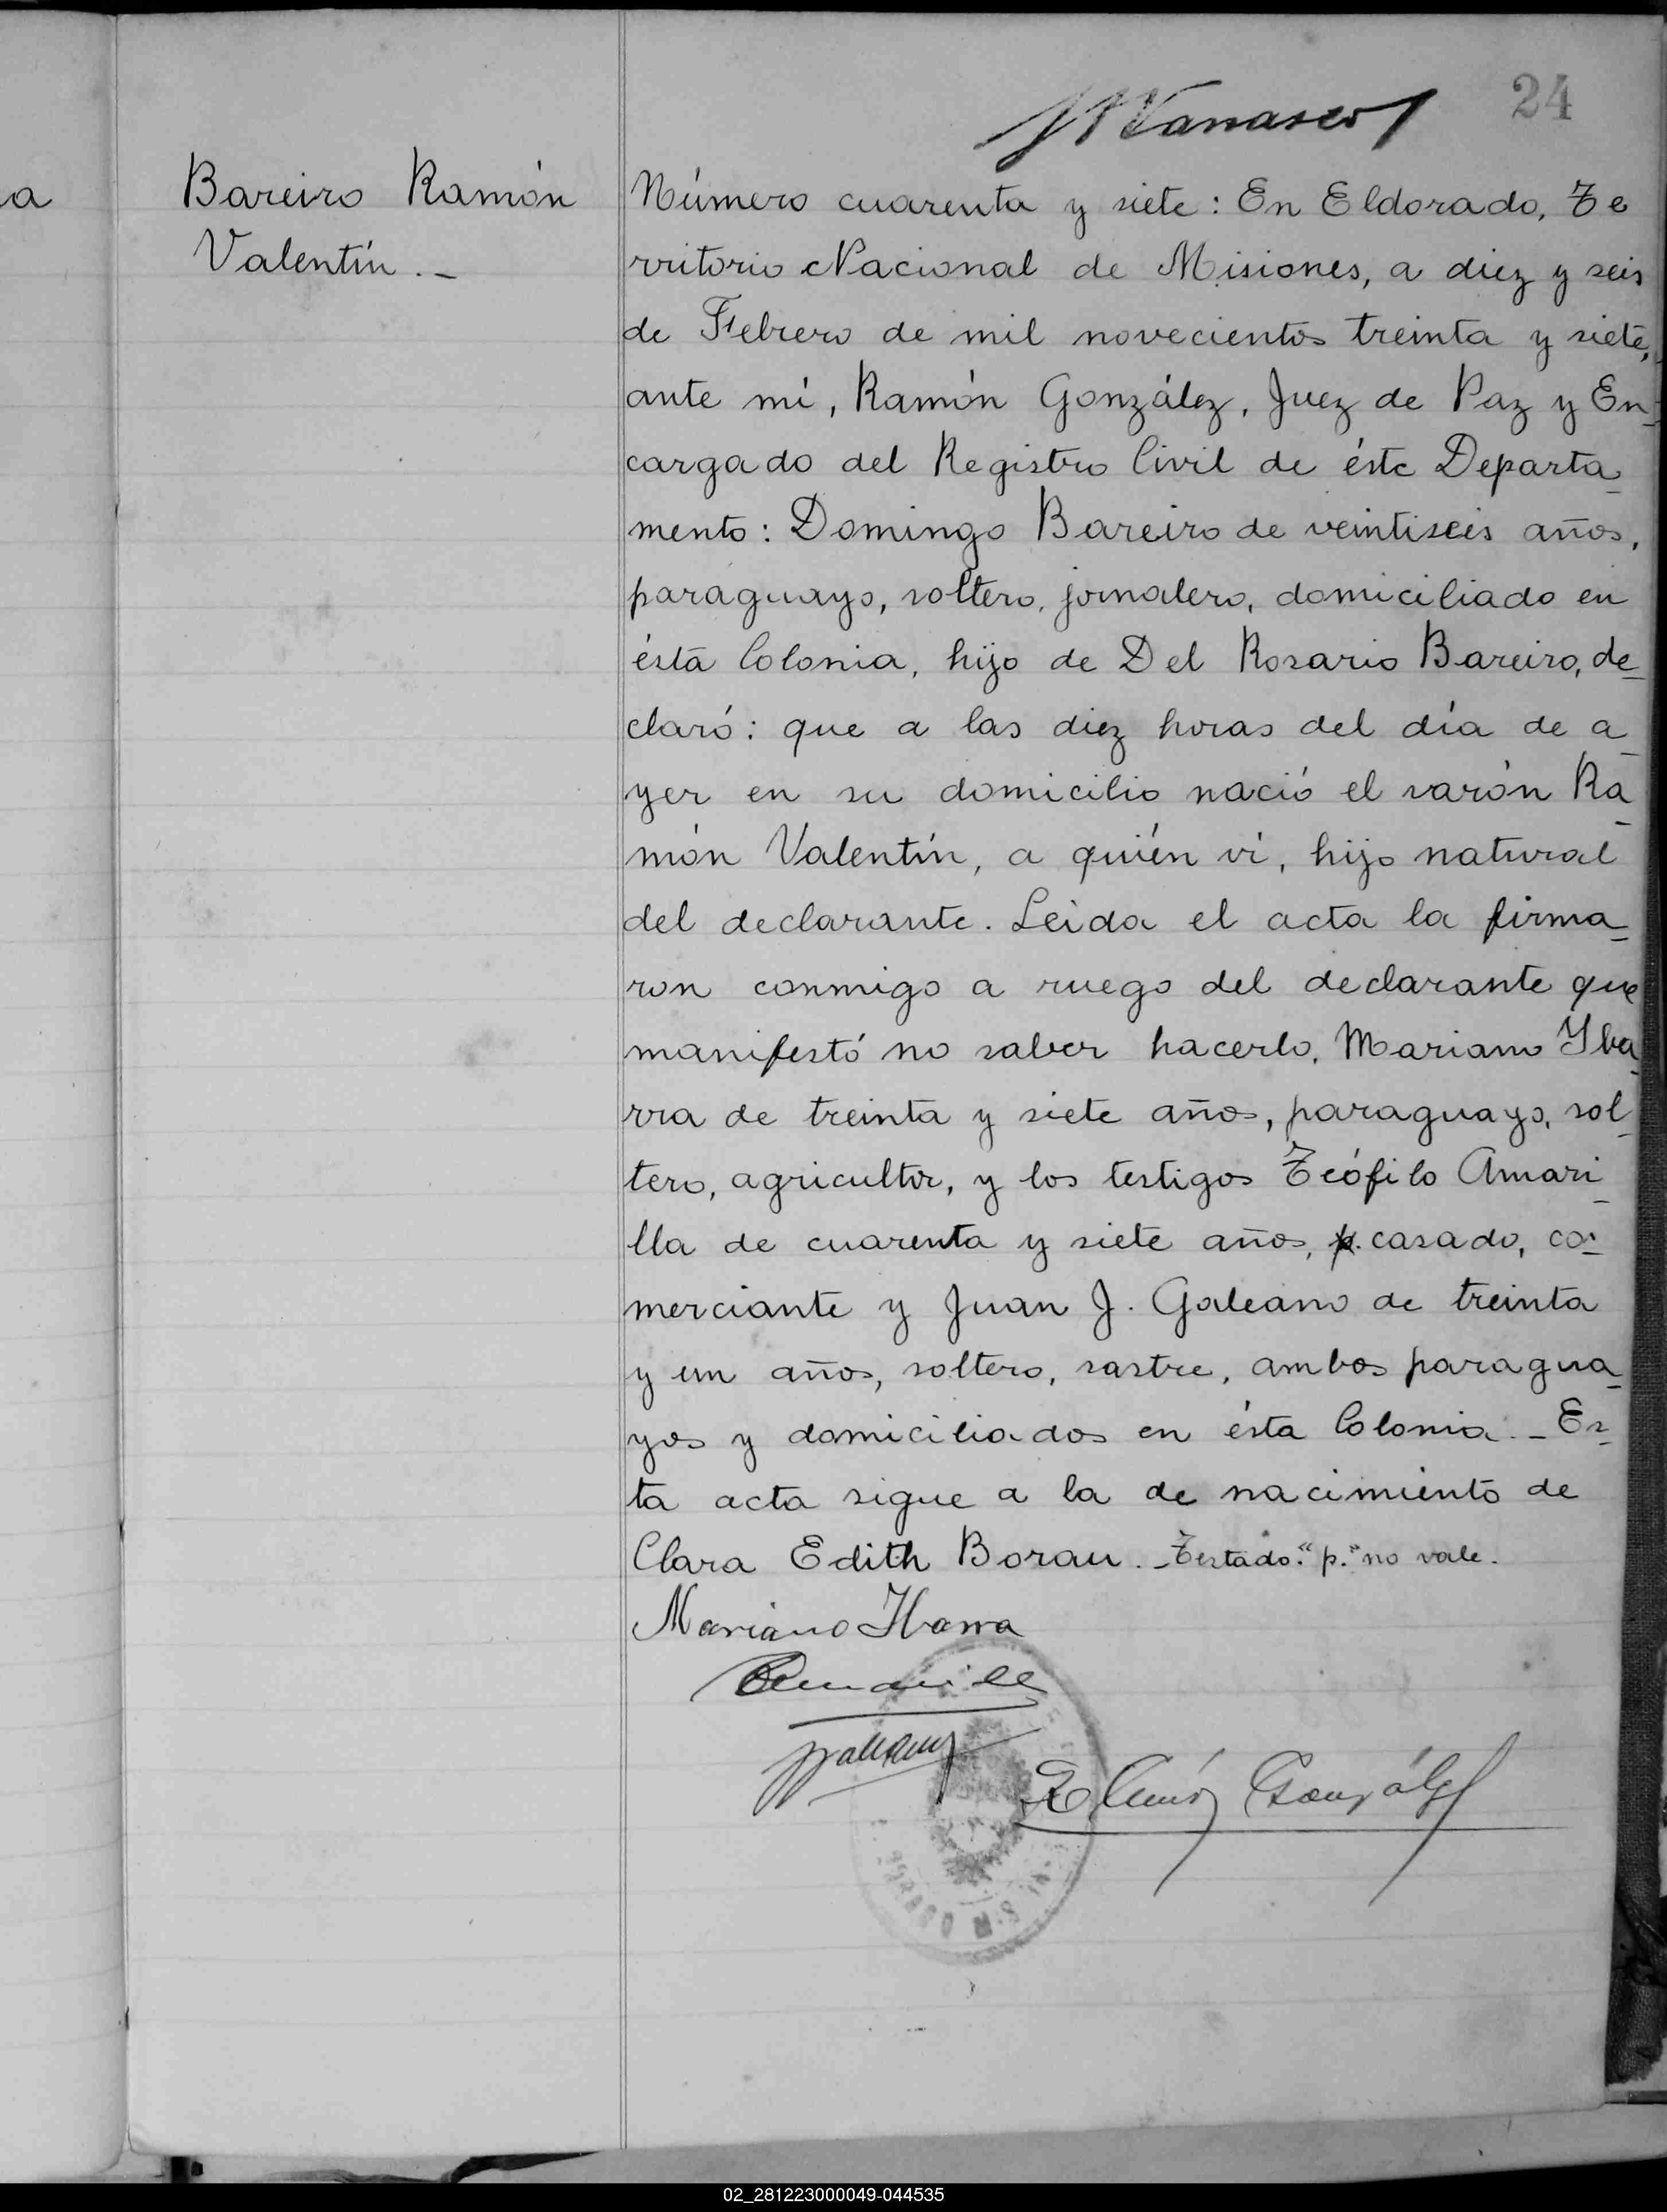 24
a
Bareiro Ramón
Valentín._
Número cuarenta y siete: En Eldorado, Te
rritorio Nacional de Misiones, a diez y seis
de Febrero de mil novecientos treinta y siete,
ante mí, Ramón González, Juez de Paz y En-
cargado del Registro Civil de éste Departa-
mento: Domingo Bareiro de veintiseis años,
paraguayo, soltero, jornalero, domiciliado en
ésta Colonia, hijo de Del Rosario Bareiro, de-
claró: que a las diez horas del día de a-
yer en su domicilio nació el varón Ra-
món Valentín, a quién ví, hijo natural
del declarante. Leida el acta la firma-
ron conmigo a ruego del declarante que
manifestó no saber hacerlo, Mariano Yba-
rra de treinta y siete años, paraguayo, sol-
tero, agricultor, y los testigos Teófilo Amari-
lla de cuarenta y siete años, p. casado, co-
merciante y Juan J. Galeano de treinta
y un años, soltero, sastre, ambos paragua-
yos y domiciliados en ésta Colonia._ Es-
ta acta sigue a la de nacimiento de
Clara Edith Borau._ Testado: "p." no vale.
Mariano Ibarra
Ramón González
02_281223000049-044535